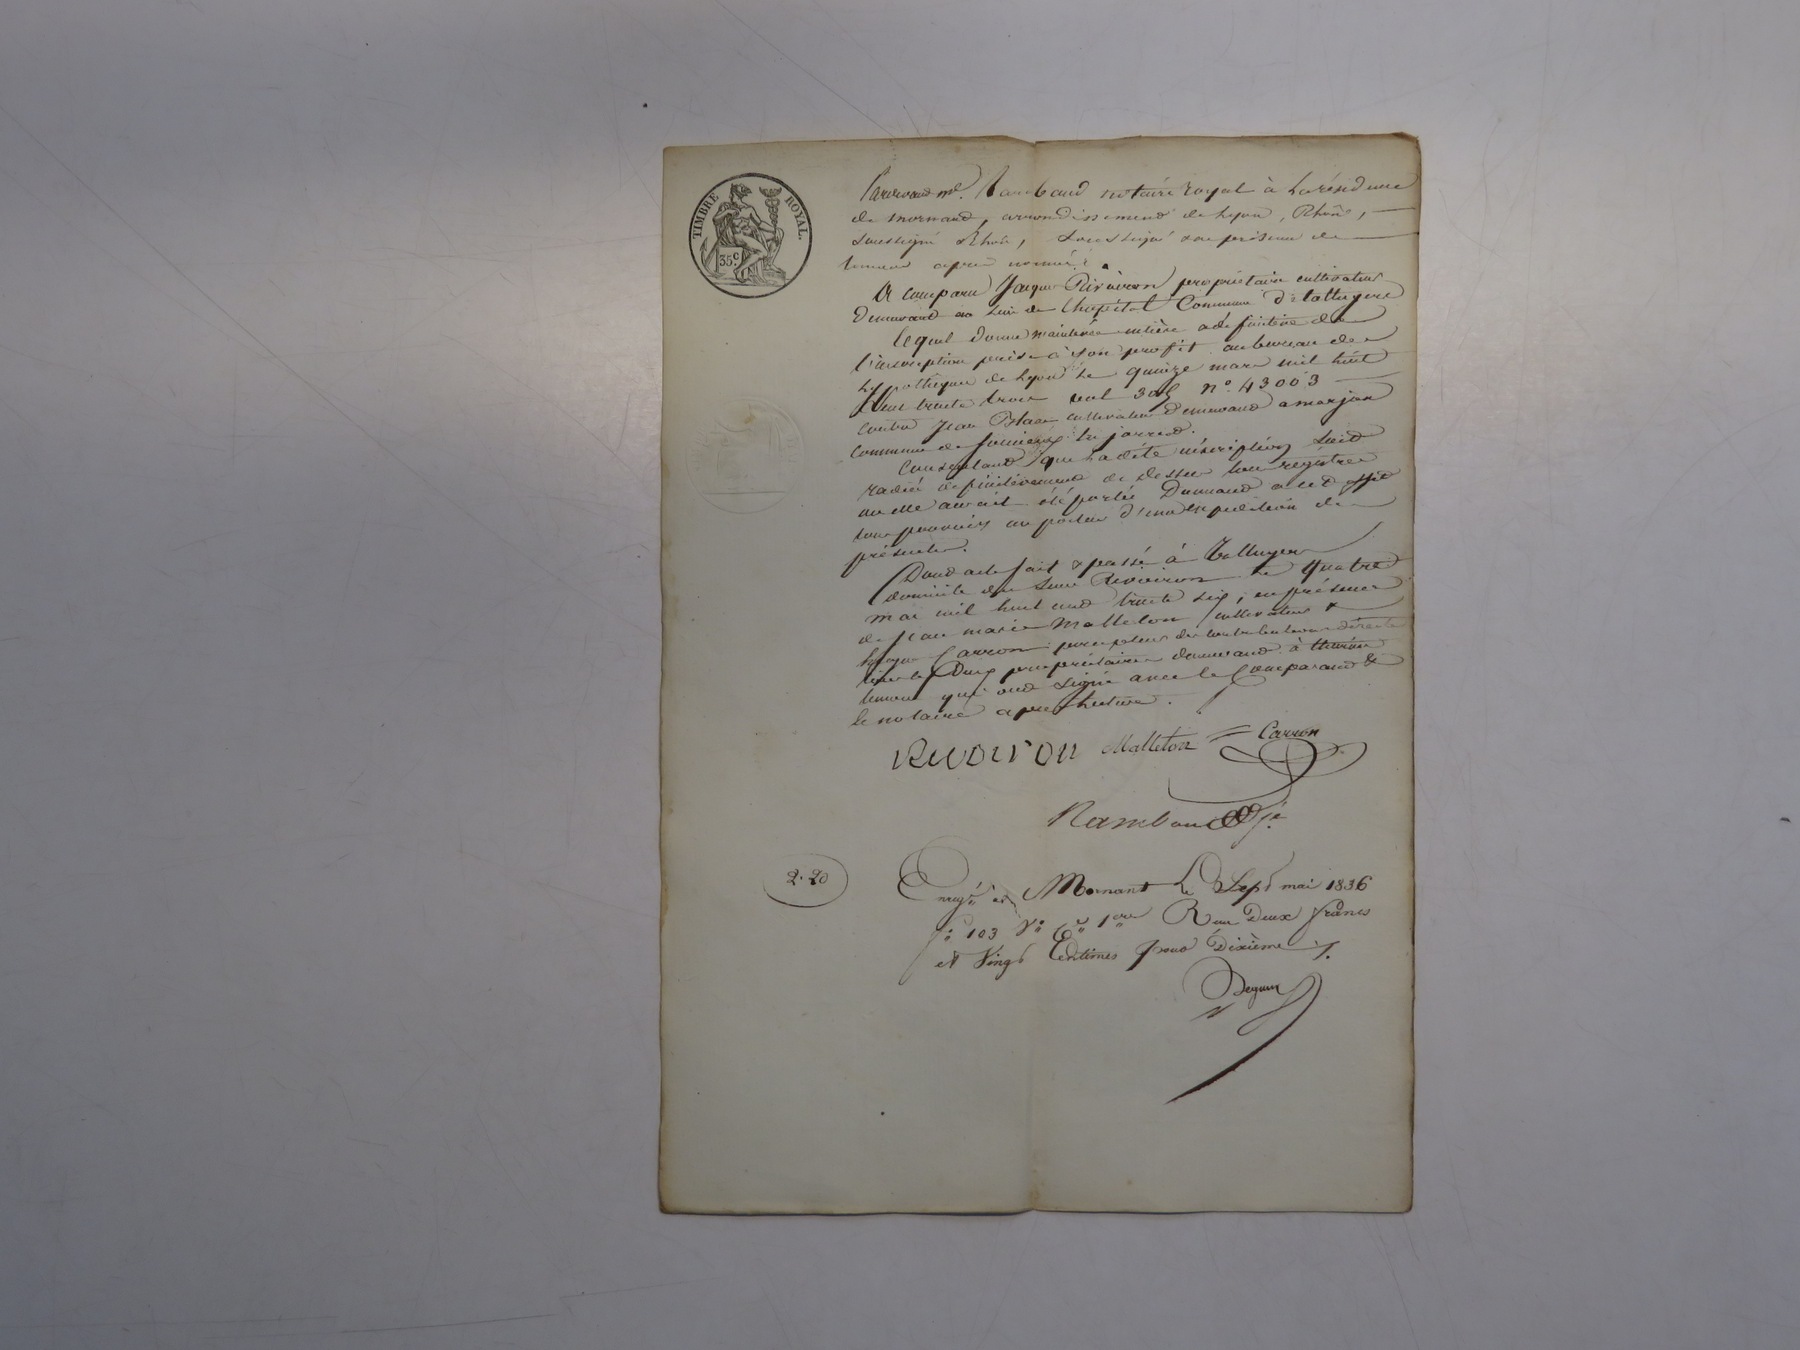 TIMBRE ROYAL.
35c
Pardevant me. Rambaud notaire royal à la résidence
de mornand, arrondissement de Lyon, Rhône,
soussigné Rhône, soussigné en présence de
temoins apres nommés
A comparu Jacques Rivoiron propriétaire cultivateur
Demeurant au lieu de Lhopital Commune de taluyers
lequel donne mainlevée entière & définitive de
l'inscription prise à son profit au bureau des
hypothèques de Lyon le quinze mars mil huit
cent trente trois vol 305 no. 43003
contre Jean cultivateur demeurant a
commune de jarrest.
Consentant que ladite inscription soit
radiée définitivement de dessus tous registres
ou elle aurait été portée Donnant a cet effet
tous pouvoirs au porteur d'une expédition des
présentes.
Dont acte fait & passé à Talluyers
domicile du sieur Rivoiron le quatre
mai mil huit cent trente six, en présence
de Jean marie Malleton cultivateur &
Carron percepteur des contributions directes
tous les Deux propriétaires demeurant à
temoins qui ont signé avec le Comparant &
le notaire apres lecture.
Rivoiron Malleton Carron
Rambaud
2.20
Enregé à Mornant le Sept mai 1836
fo 103 Vo Ce 1ere R un Deux francs
et Vingt Centimes pour Dixième